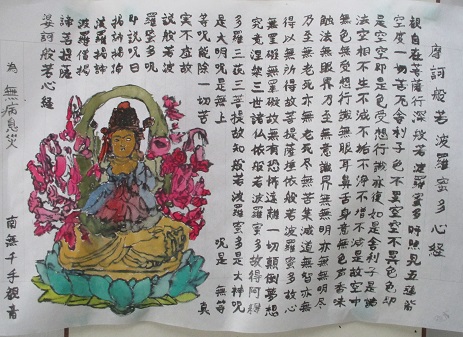 摩訶般若波羅蜜多心経
観自在菩薩行深般若波羅蜜多時照見五蘊皆
空度一切苦厄舎利子色不異空空不異色色即
是空空即是色受想行識亦復如是舎利子是諸
法空相不生不滅不垢不浄不増不減是故空中
無色無受想行識無眼耳鼻舌身意無色声香味
触法無眼界乃至無意識界無無明亦無無明尽
乃至無老死亦無老死尽無苦集滅道無智亦無
得以無所得故菩提薩埵依般若波羅蜜多故心
無罣礙無罣礙故無有恐怖遠離一切顛倒夢想
究竟涅槃三世諸仏依般若波羅蜜多故得阿耨
多羅三藐三菩提故知般若波羅蜜多是大神呪
是大明呪是無上呪是無等
等呪能除一切苦真
実不虚故
説般若波
羅蜜多呪
即説呪曰
羯諦羯諦
波羅羯諦
波羅僧羯
諦菩提薩
婆訶般若心経
為 無病息災
南無千手観音